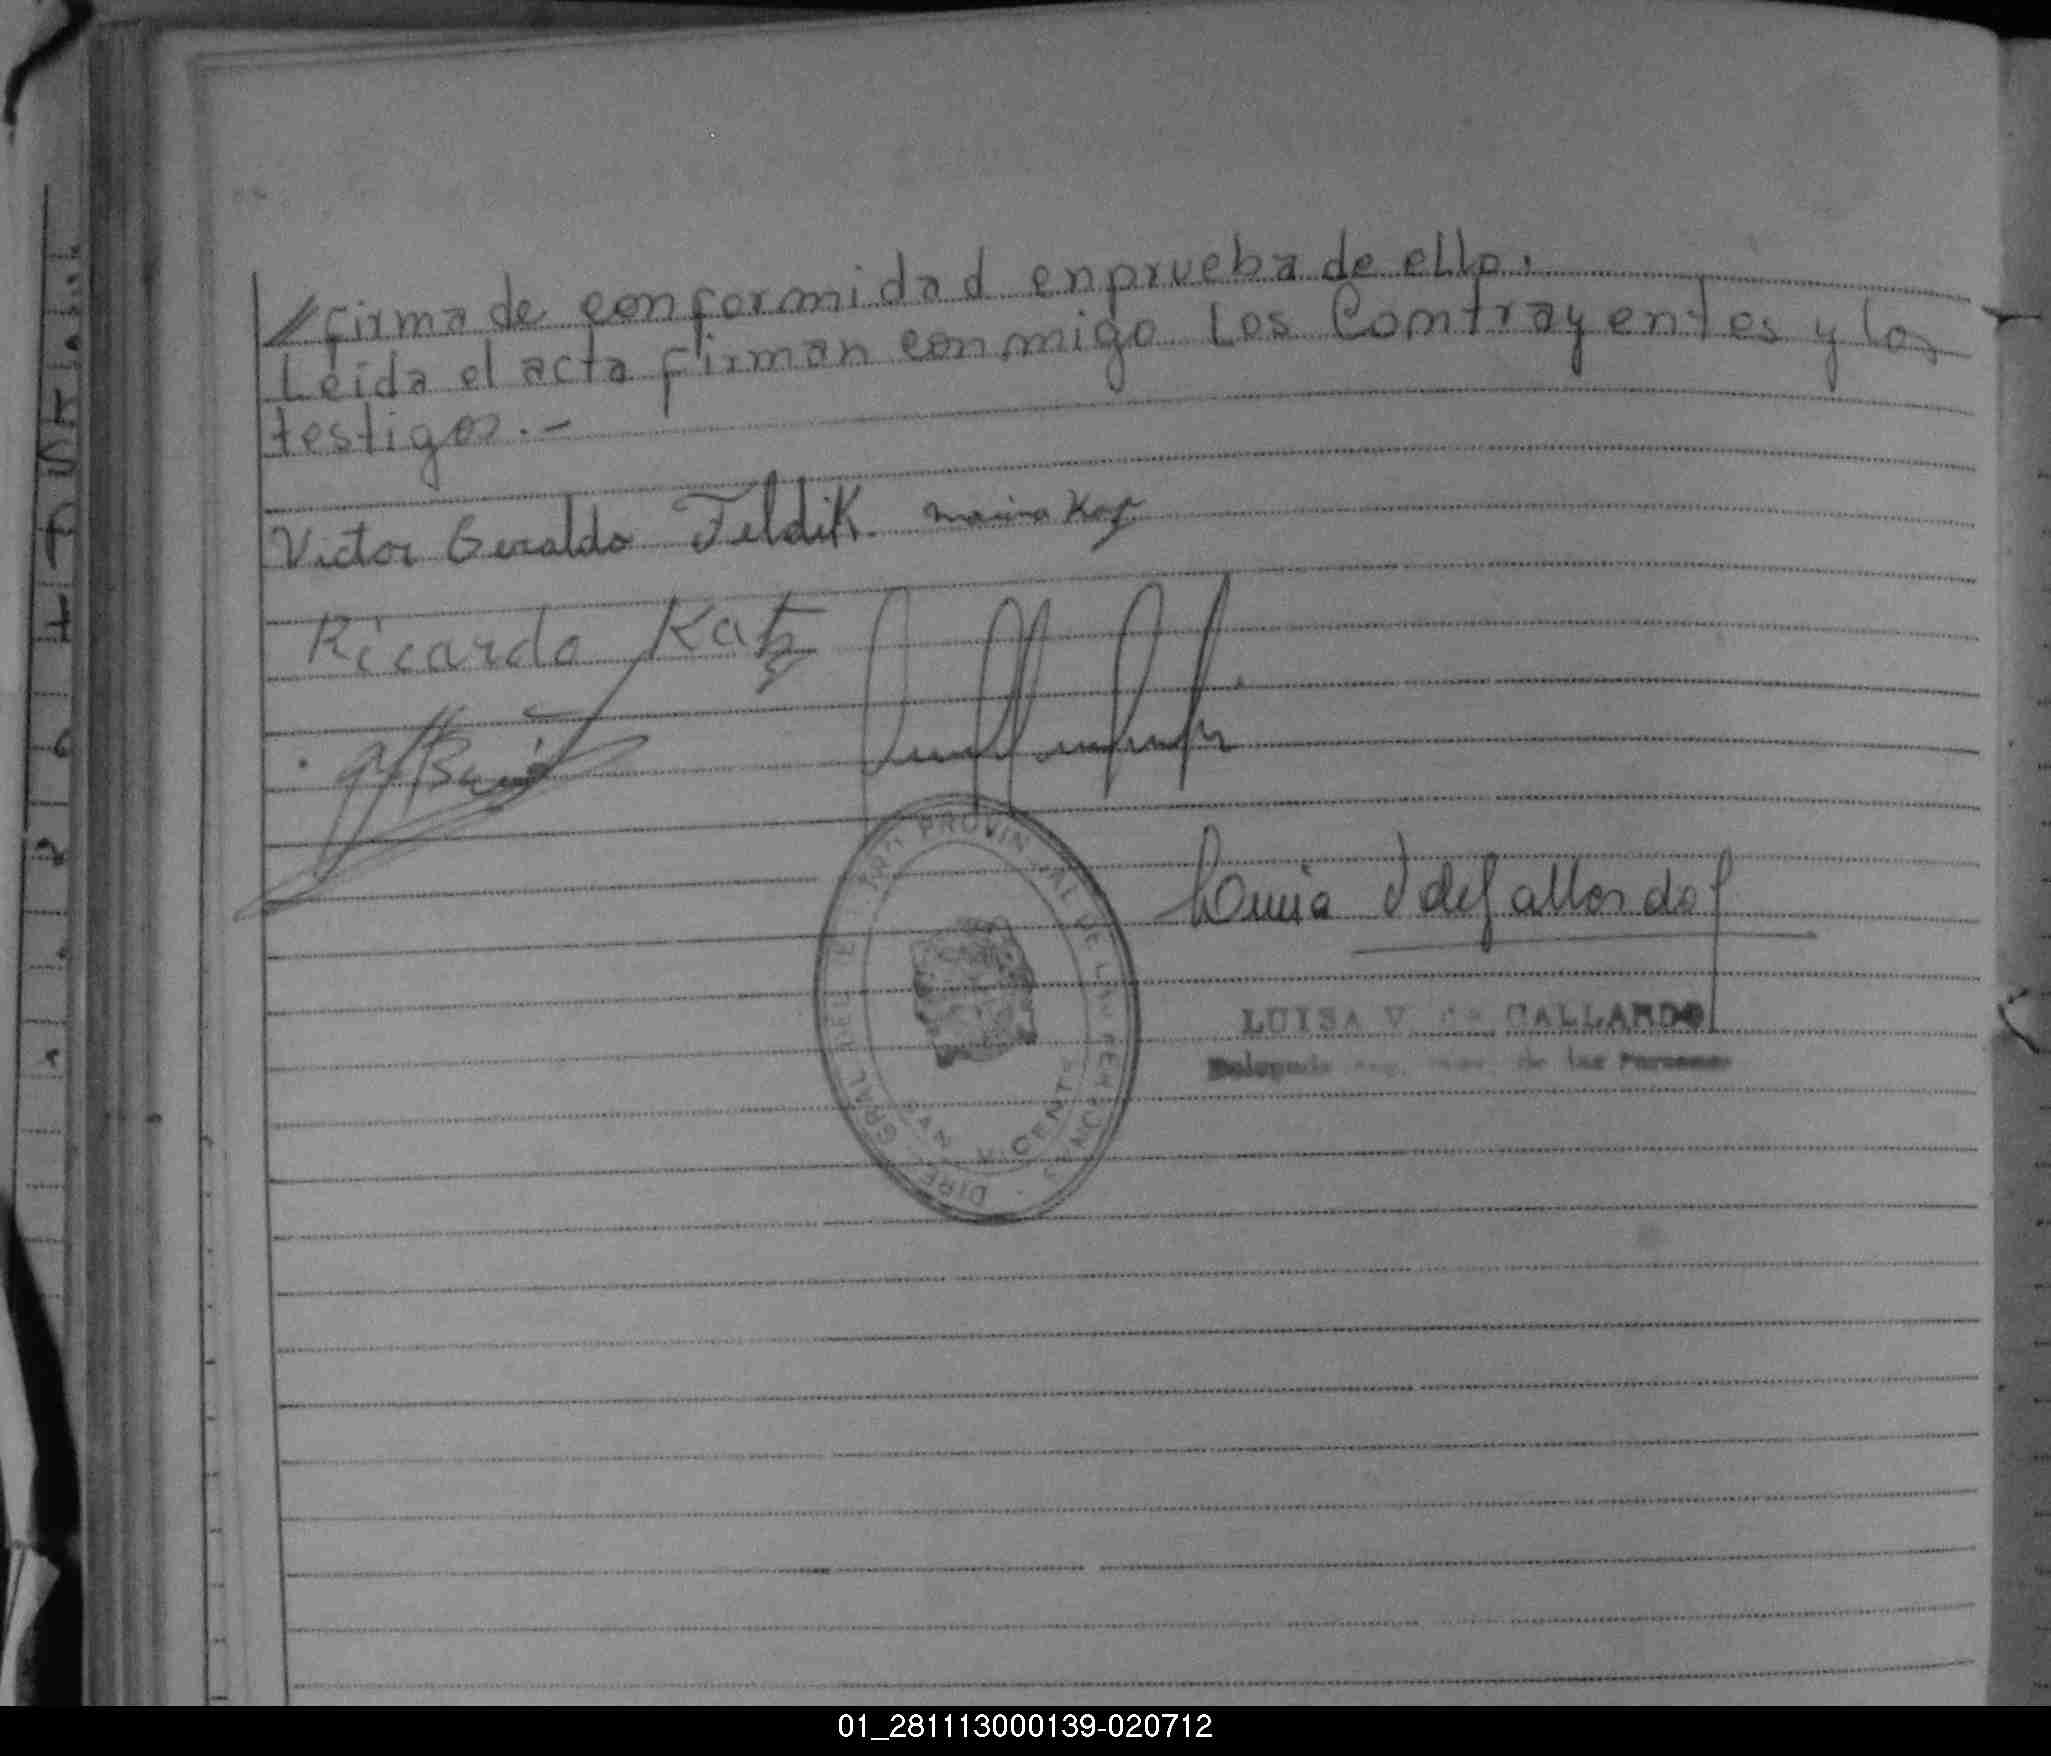 firma de conformidad en prueba de ello.
Leida el acta firman conmigo Los Contrayentes y los
testigos.-
Victor Geraldo Feldik. maria
Ricardo Katz
Luisa V de Gallardo
LUISA V. de GALLARDO
de las Personas
DIREC. GRAL. REG. PROVINCIAL DE LAS PERSONAS
VICENTE
01_281113000139-020712